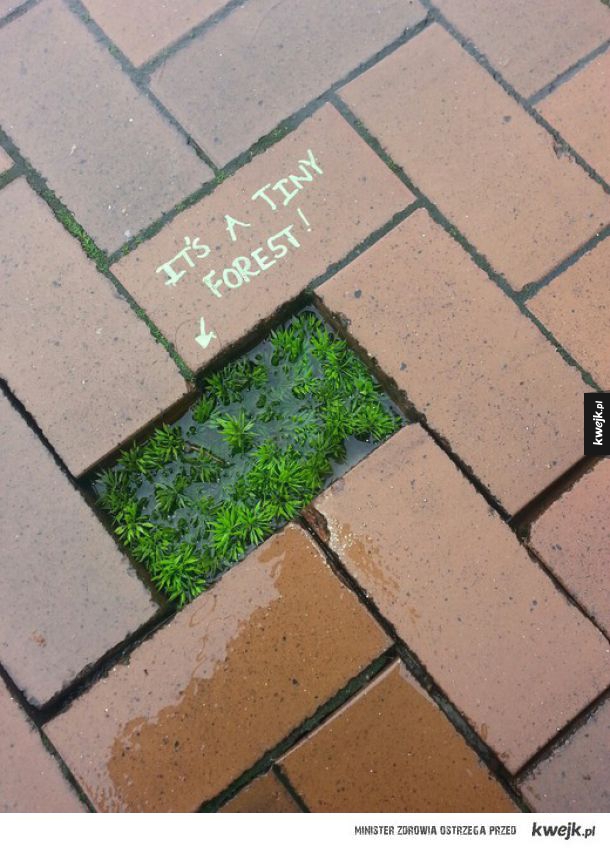 IT'S A TINY
FOREST!
kwejk.pl
MINISTER ZDROWIA OSTRZEGA PRZED kwejk.pl